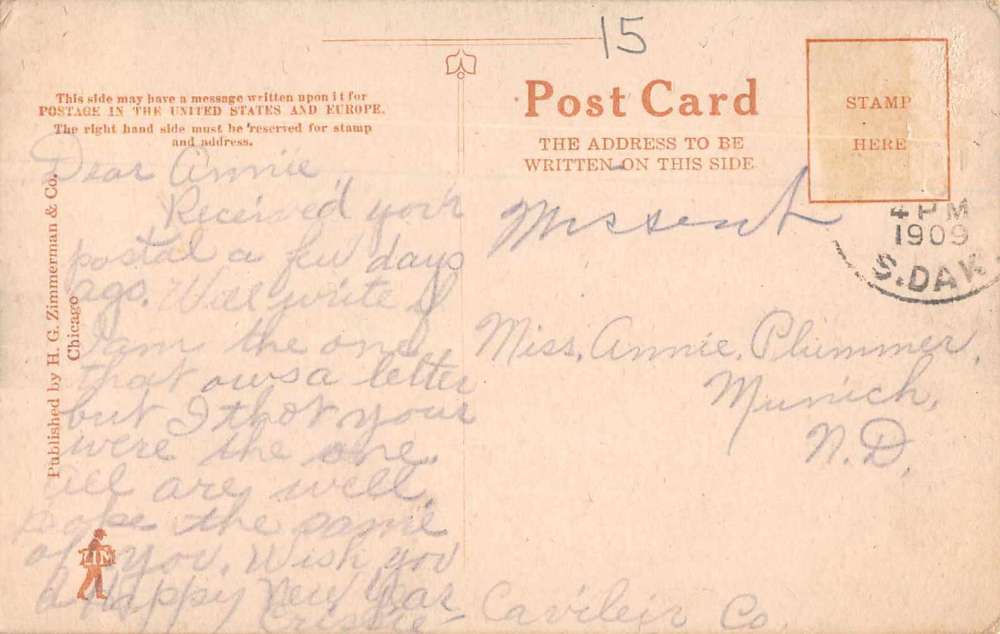 15
This side may have a message written upon it for
POSTAGE IN THE UNITED STATES AND EUROPE.
The right hand side must be reserved for stamp
and address.
Post Card
THE ADDRESS TO BE
WRITTEN ON THIS SIDE
STAMP
HERE
4 PM
1909
S.DAK
Published by H. G. Zimmerman & Co.
Chicago
Dear Annie,
Received your
postal a few days
ago. Will write I
am the one
that ows a letter
but I thot your
were the one.
All are well,
hope the same
of you. Wish you
a Happy New Year
ZIM
Missent
Miss. Annie. Plummer,
Munich,
N.D.
Cavileir Co.